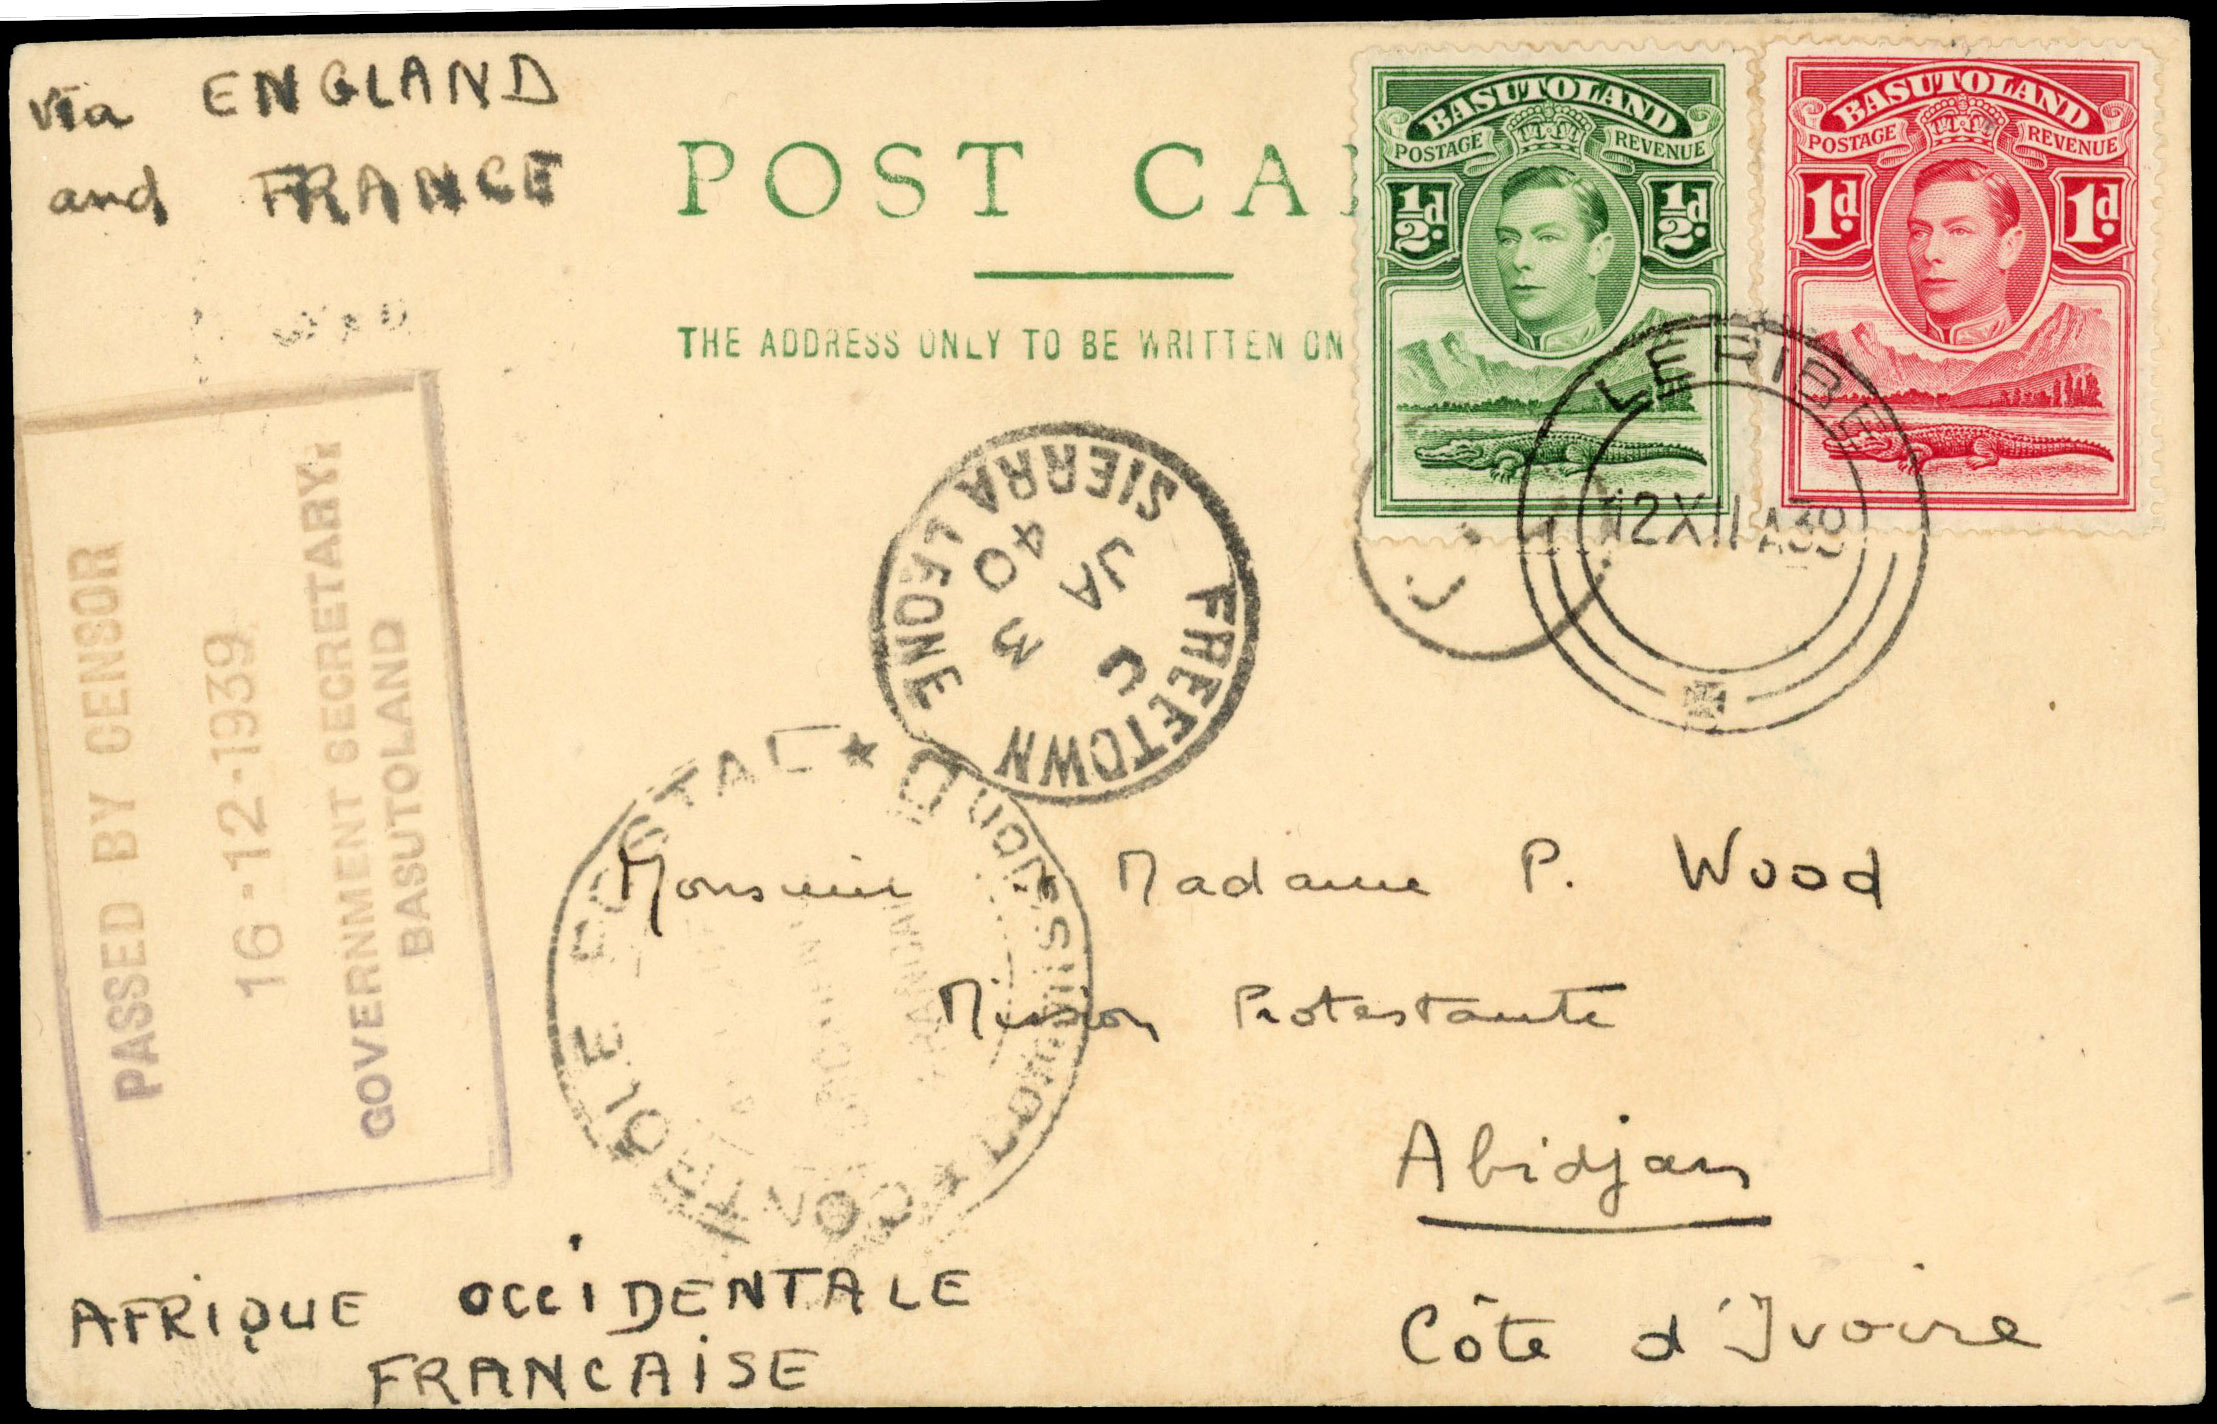 via ENGLAND
and FRANCE
POST CA
THE ADDRESS ONLY TO BE WRITTEN ON
BASUTOLAND
POSTAGE REVENUE
½d. ½d.
BASUTOLAND
POSTAGE REVENUE
1d. 1d.
LERIBE
12 XII 39
FREETOWN
SIERRA LEONE
3
JA
40
PASSED BY CENSOR
16-12-1939
GOVERNMENT SECRETARY,
BASUTOLAND
CONTROLE POSTAL
COMMISSION D
Monsieur Madame P. Wood
Mission Protestante
Abidjan
Côte d'Ivoire
AFRIQUE OCCIDENTALE
FRANCAISE